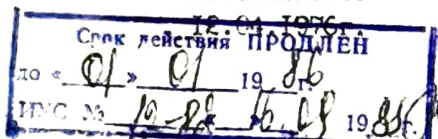 12.04.1976г.
Срок действия ПРОДЛЕН
до «01» 01 1986 г.
ИУС № 10-82 19 г.